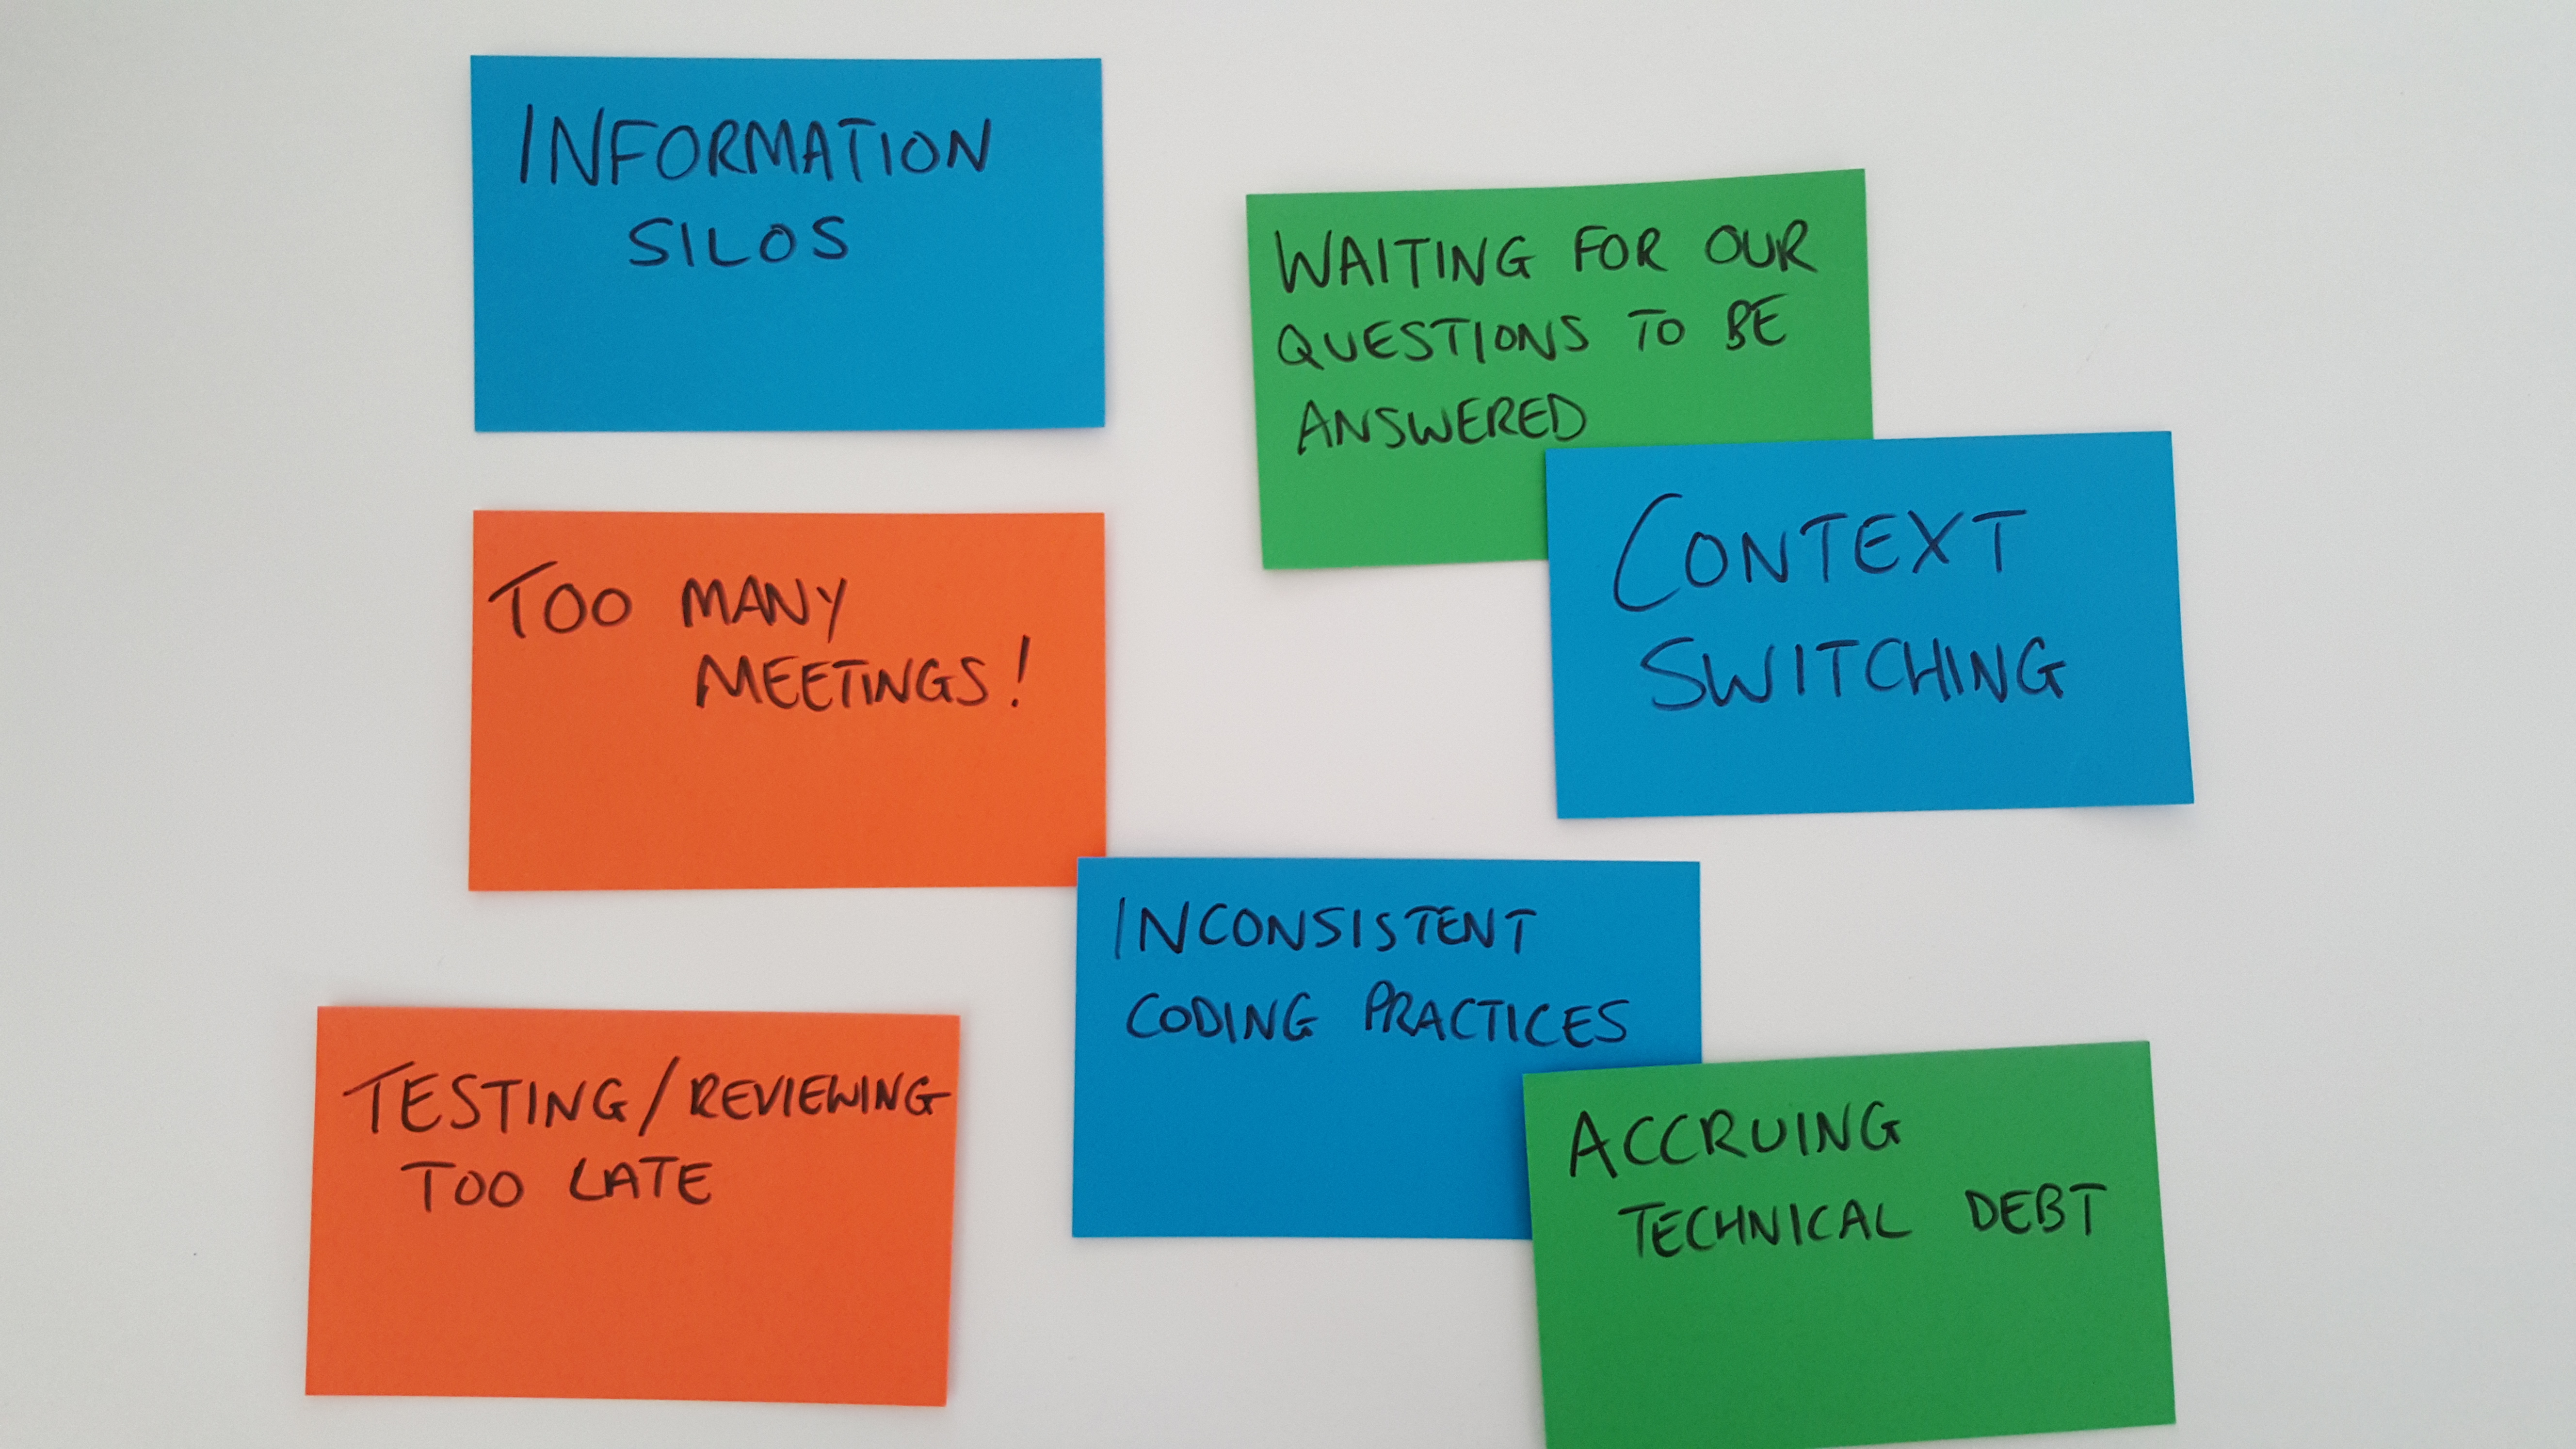 INFORMATION
SILOS
WAITING FOR OUR
QUESTIONS TO BE
ANSWERED
TOO MANY
MEETINGS!
CONTEXT
SWITCHING
INCONSISTENT
CODING PRACTICES
TESTING/REVIEWING
TOO LATE
ACCRUING
TECHNICAL DEBT